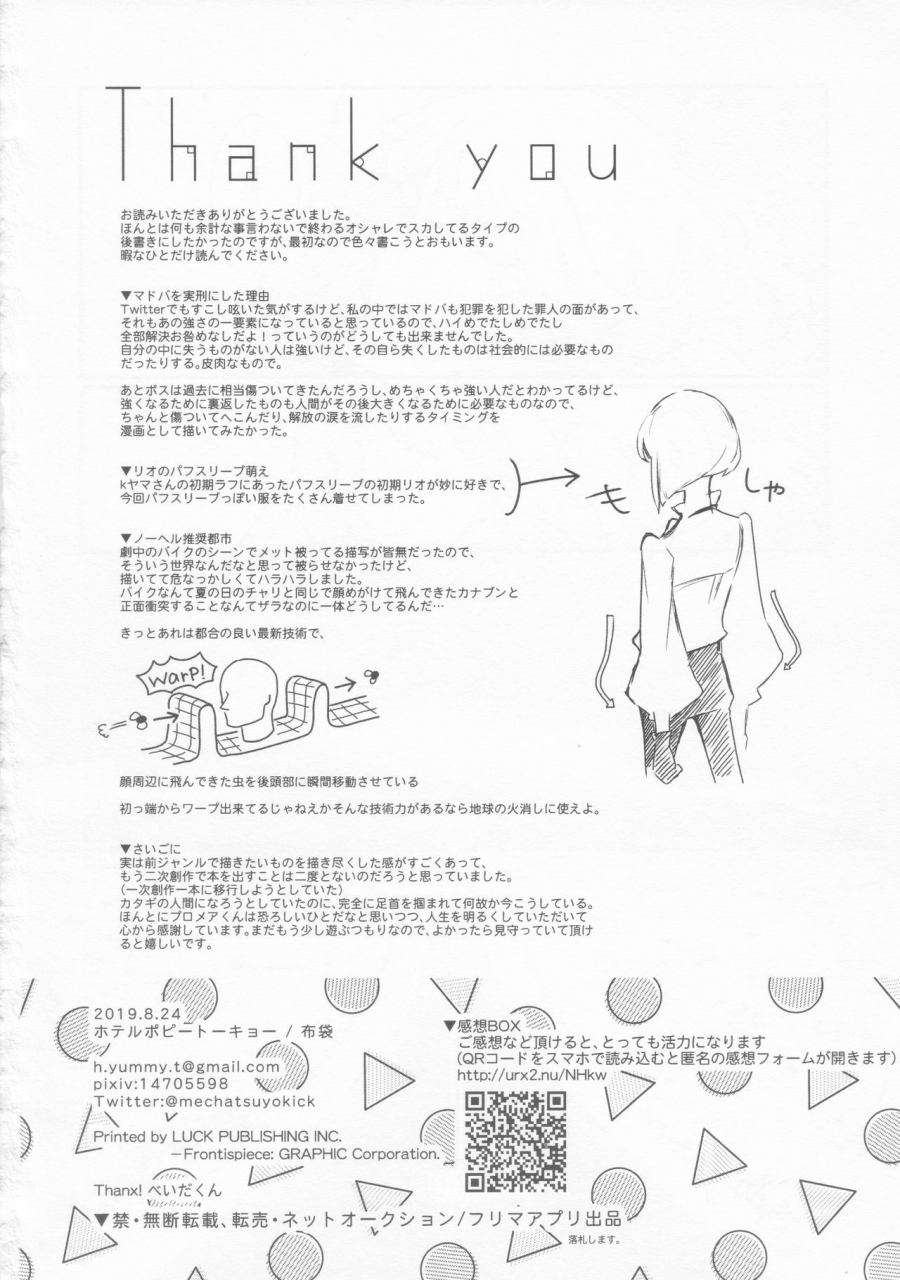 Thank you
お読みいただきありがとうございました。
ほんとは何も余計な事言わないで終わるオシャレでスカしてるタイプの
後書きにしたかったのですが、最初なので色々書こうとおもいます。
暇なひとだけ読んでください。
▼マドバを実刑にした理由
Twitterでもすこし呟いた気がするけど、私の中ではマドバも犯罪を犯した罪人の面があって、
それもあの強さの一要素になっていると思っているので、ハイめでたしめでたし
全部解決お咎めなしだよ！っていうのがどうしても出来ませんでした。
自分の中に失うものがない人は強いけど、その自ら失くしたものは社会的には必要なもの
だったりする。皮肉なもので。
あとボスは過去に相当傷ついてきたんだろうし、めちゃくちゃ強い人だとわかってるけど、
強くなるために裏返したものも人間がその後大きくなるために必要なものなので、
ちゃんと傷ついてへこんだり、解放の涙を流したりするタイミングを
漫画として描いてみたかった。
▼リオのパフスリーブ萌え
kヤマさんの初期ラフにあったパフスリーブの初期リオが妙に好きで、
今回パフスリーブっぽい服をたくさん着せてしまった。
も しゃ
▼ノーヘル推奨都市
劇中のバイクのシーンでメット被ってる描写が皆無だったので、
そういう世界なんだなと思って被らせなかったけど、
描いてて危なっかしくてハラハラしました。
バイクなんて夏の日のチャリと同じで顔めがけて飛んできたカナブンと
正面衝突することなんてザラなのに一体どうしてるんだ…
きっとあれは都合の良い最新技術で、
warp!
顔周辺に飛んできた虫を後頭部に瞬間移動させている
初っ端からワープ出来てるじゃねえかそんな技術力があるなら地球の火消しに使えよ。
▼さいごに
実は前ジャンルで描きたいものを描き尽くした感がすごくあって、
もう二次創作で本を出すことは二度とないのだろうと思っていました。
（一次創作一本に移行しようとしていた）
カタギの人間になろうとしていたのに、完全に足首を掴まれて何故か今こうしている。
ほんとにプロメアくんは恐ろしいひとだなと思いつつ、人生を明るくしていただいて
心から感謝しています。まだもう少し遊ぶつもりなので、よかったら見守っていて頂け
ると嬉しいです。
2019.8.24
ホテルポピートーキョー / 布袋
h.yummy.t@gmail.com
pixiv:14705598
Twitter:@mechatsuyokick
Printed by LUCK PUBLISHING INC.
－Frontispiece: GRAPHIC Corporation.
Thanx! べいだくん
▼感想BOX
ご感想など頂けると、とっても活力になります
（QRコードをスマホで読み込むと匿名の感想フォームが開きます）
http://urx2.nu/NHkw
▼禁・無断転載、転売・ネットオークション/フリマアプリ出品
落札します。